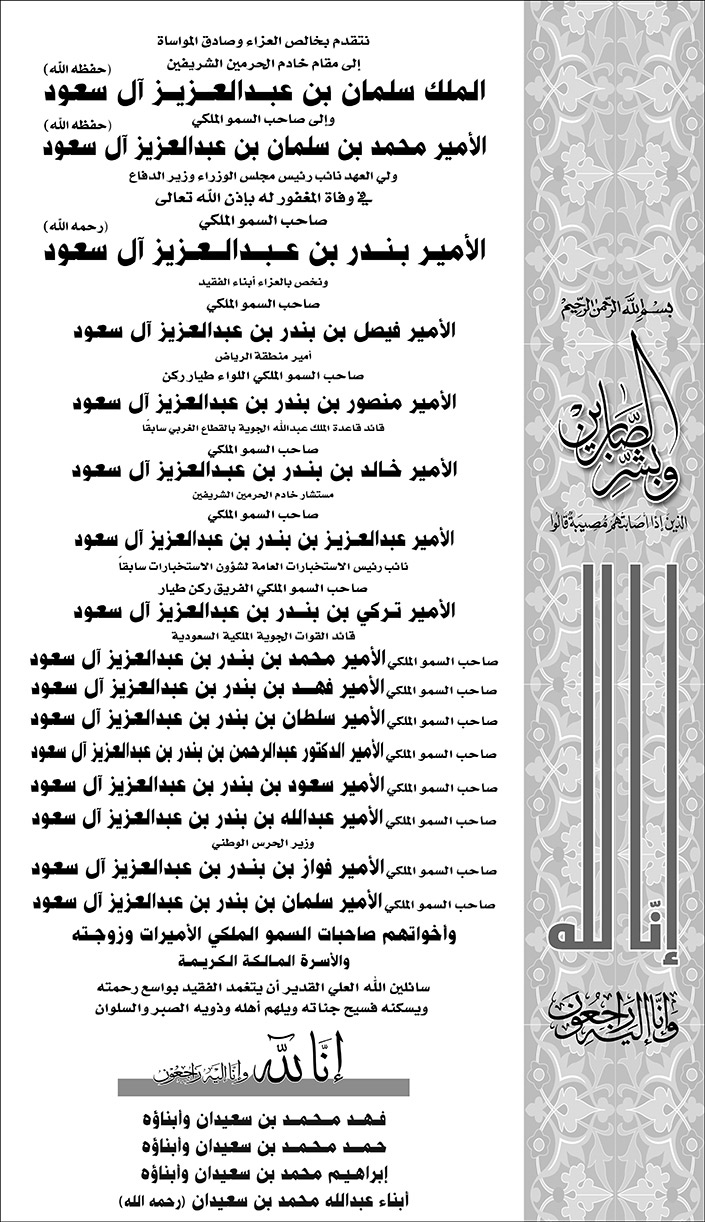 نتقدم بخالص العزاء وصادق المواساة
إلى مقام خادم الحرمين الشريفين
الملك سلمان بن عبدالعزيز آل سعود (حفظه الله)
وإلى صاحب السمو الملكي
الأمير محمد بن سلمان بن عبدالعزيز آل سعود (حفظه الله)
ولي العهد نائب رئيس مجلس الوزراء وزير الدفاع
في وفاة المغفور له بإذن الله تعالى
صاحب السمو الملكي
الأمير بندر بن عبدالعزيز آل سعود (رحمه الله)
ونخص بالعزاء أبناء الفقيد
صاحب السمو الملكي
الأمير فيصل بن بندر بن عبدالعزيز آل سعود
أمير منطقة الرياض
صاحب السمو الملكي اللواء طيار ركن
الأمير منصور بن بندر بن عبدالعزيز آل سعود
قائد قاعدة الملك عبدالله الجوية بالقطاع الغربي سابقًا
صاحب السمو الملكي
الأمير خالد بن بندر بن عبدالعزيز آل سعود
مستشار خادم الحرمين الشريفين
صاحب السمو الملكي
الأمير عبدالعزيز بن بندر بن عبدالعزيز آل سعود
نائب رئيس الاستخبارات العامة لشؤون الاستخبارات سابقاً
صاحب السمو الملكي الفريق ركن طيار
الأمير تركي بن بندر بن عبدالعزيز آل سعود
قائد القوات الجوية الملكية السعودية
صاحب السمو الملكي الأمير محمد بن بندر بن عبدالعزيز آل سعود
صاحب السمو الملكي الأمير فهد بن بندر بن عبدالعزيز آل سعود
صاحب السمو الملكي الأمير سلطان بن بندر بن عبدالعزيز آل سعود
صاحب السمو الملكي الأمير الدكتور عبدالرحمن بن بندر بن عبدالعزيز آل سعود
صاحب السمو الملكي الأمير سعود بن بندر بن عبدالعزيز آل سعود
صاحب السمو الملكي الأمير عبدالله بن بندر بن عبدالعزيز آل سعود
وزير الحرس الوطني
صاحب السمو الملكي الأمير فواز بن بندر بن عبدالعزيز آل سعود
صاحب السمو الملكي الأمير سلمان بن بندر بن عبدالعزيز آل سعود
وأخواتهم صاحبات السمو الملكي الأميرات وزوجته
والأسرة المالكة الكريمة
سائلين الله العلي القدير أن يتغمد الفقيد بواسع رحمته
ويسكنه فسيح جناته ويلهم أهله وذويه الصبر والسلوان
إنا لله وإنا إليه راجعون
فهد محمد بن سعيدان وأبناؤه
حمد محمد بن سعيدان وأبناؤه
إبراهيم محمد بن سعيدان وأبناؤه
أبناء عبدالله محمد بن سعيدان (رحمه الله)
بسم الله الرحمن الرحيم
وبشر الصابرين
الذين إذا أصابتهم مصيبة قالوا
إنا لله
وإنا إليه راجعون